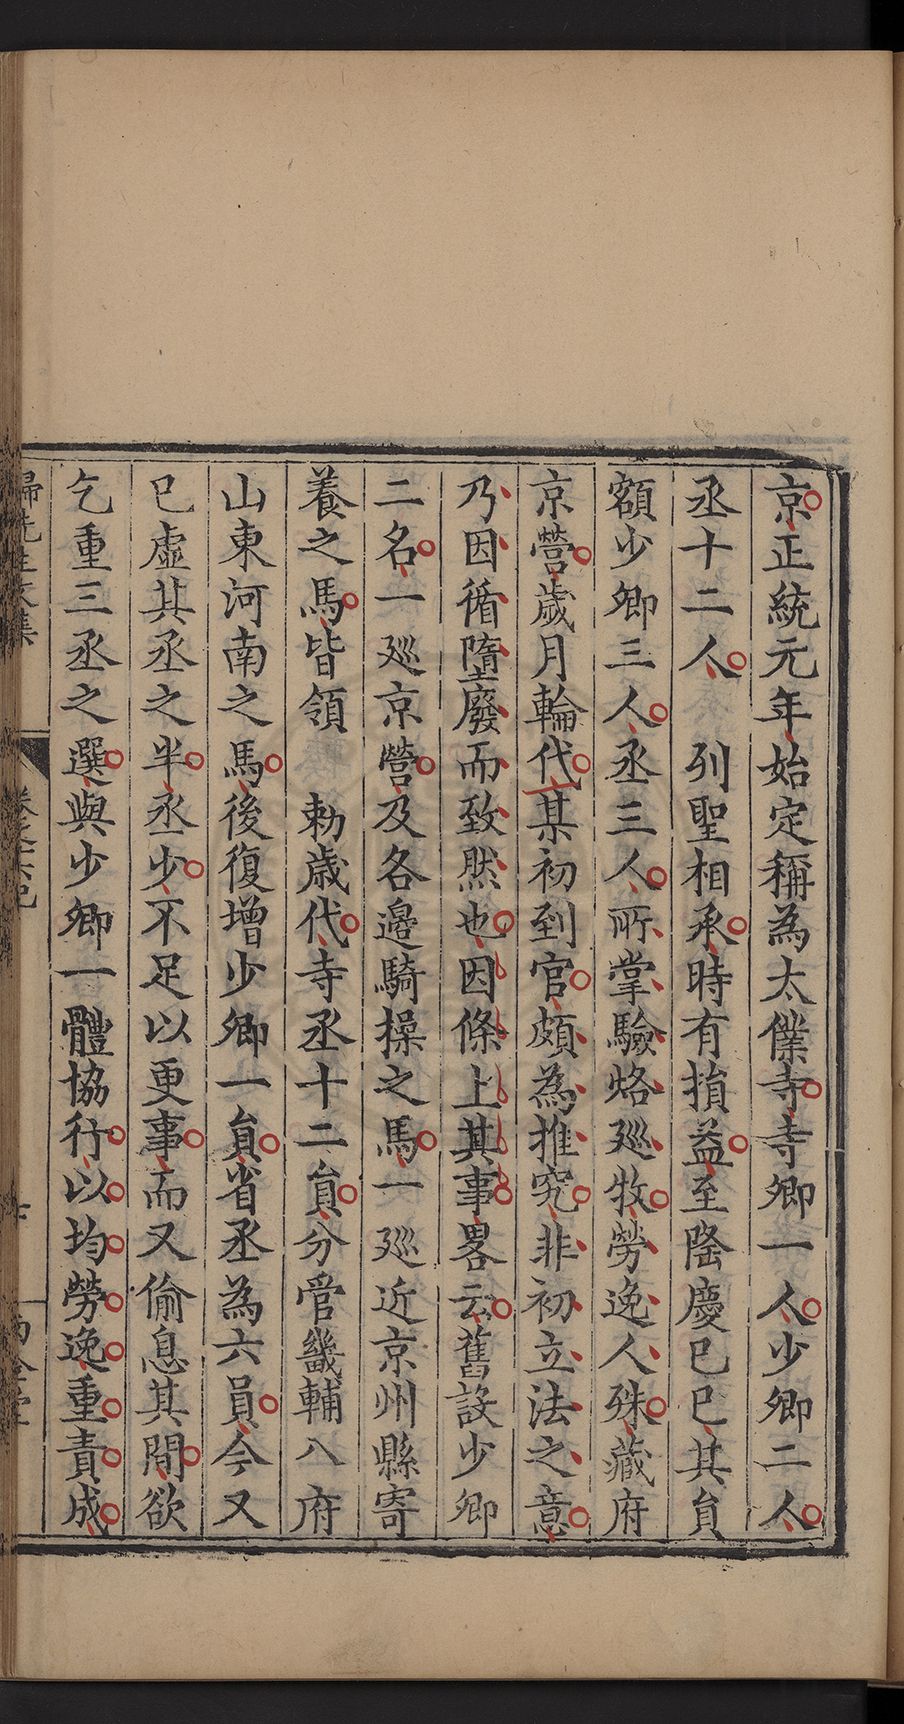 京正統元年始定稱為太僕寺寺卿一人少卿二人
丞十二人　列聖相承時有損益至隆慶已巳其員
額少卿三人丞三人所掌驗烙巡牧勞逸人殊藏府
京營歲月輪代某初到官頗為推究非初立法之意
乃因循墮廢而致然也因條上其事畧云舊設少卿
二名一巡京營及各邊騎操之馬一巡近京州縣寄
養之馬皆領　勅歲代寺丞十二員分管畿輔八府
山東河南之馬後復增少卿一員省丞為六員今又
已虛其丞之半丞少不足以更事而又偷息其間欲
乞重三丞之選與少卿一體協行以均勞逸重責成